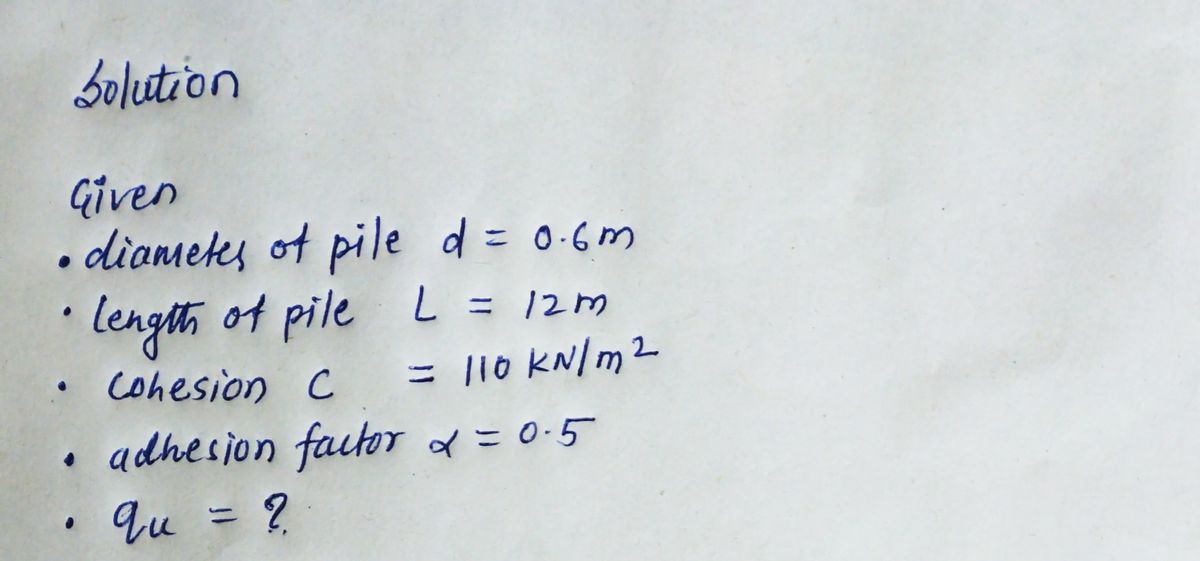 Solution
Given
• diameter of pile d = 0.6 m
• length of pile L = 12 m
• cohesion C = 110 KN/m²
• adhesion factor α = 0.5
• qu = ?